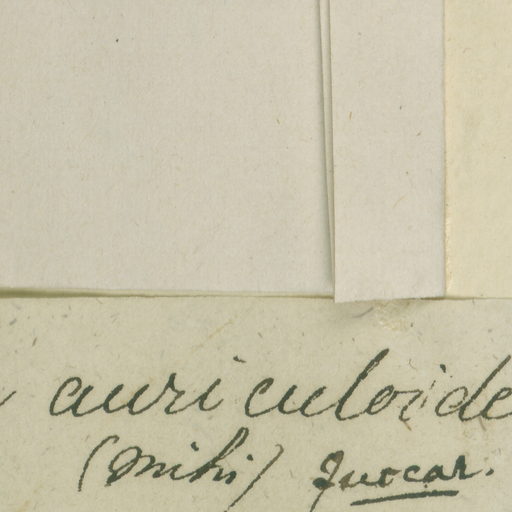 auriculoide
(mihi) Juocar.